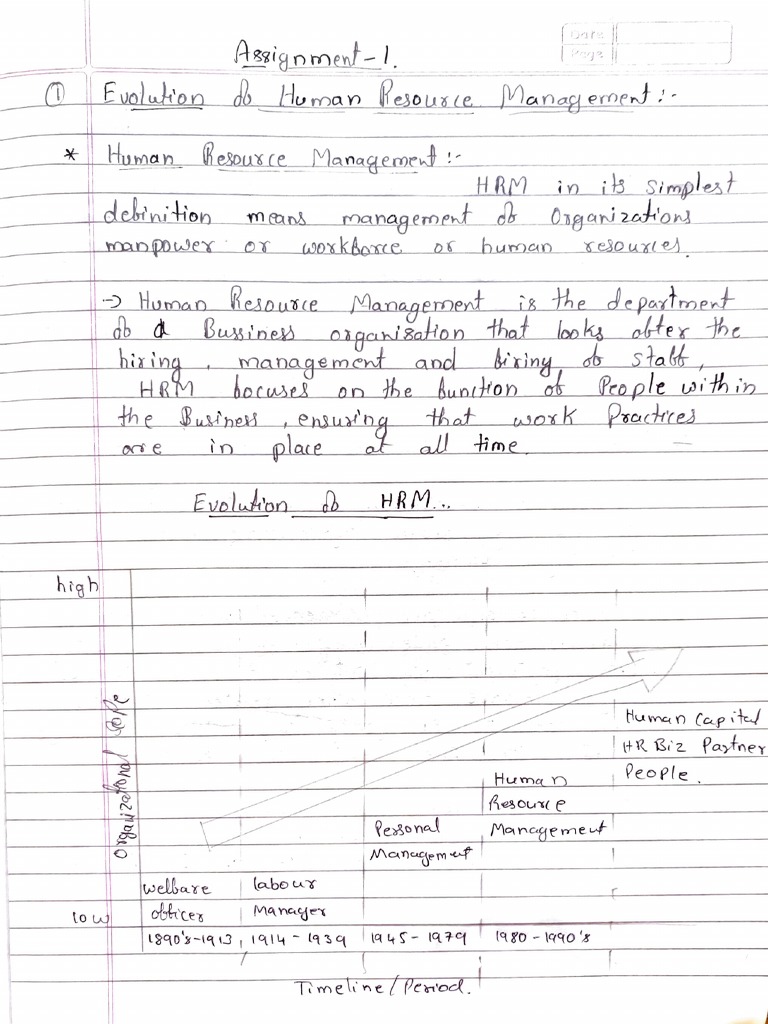 Date
Page
Assignment-1.
① Evolution of Human Resource Management :-
* Human Resource Management :-
HRM in its simplest
definition means management of Organizations
manpower or workforce or human resources.
→ Human Resource Management is the department
of a Bussiness organisation that looks after the
hiring, management and firing of staff,
HRM focuses on the function of People within
the Business, ensuring that work Practices
are in place at all time.
Evolution of HRM...
high
Organizational
Human Capital
HR Biz Partner
People.
Human
Resource
Management
Personal
Management
welfare
officer
labour
Manager
low
1890's-1913
1914-1939
1945-1979
1980-1990's
Timeline/Period.